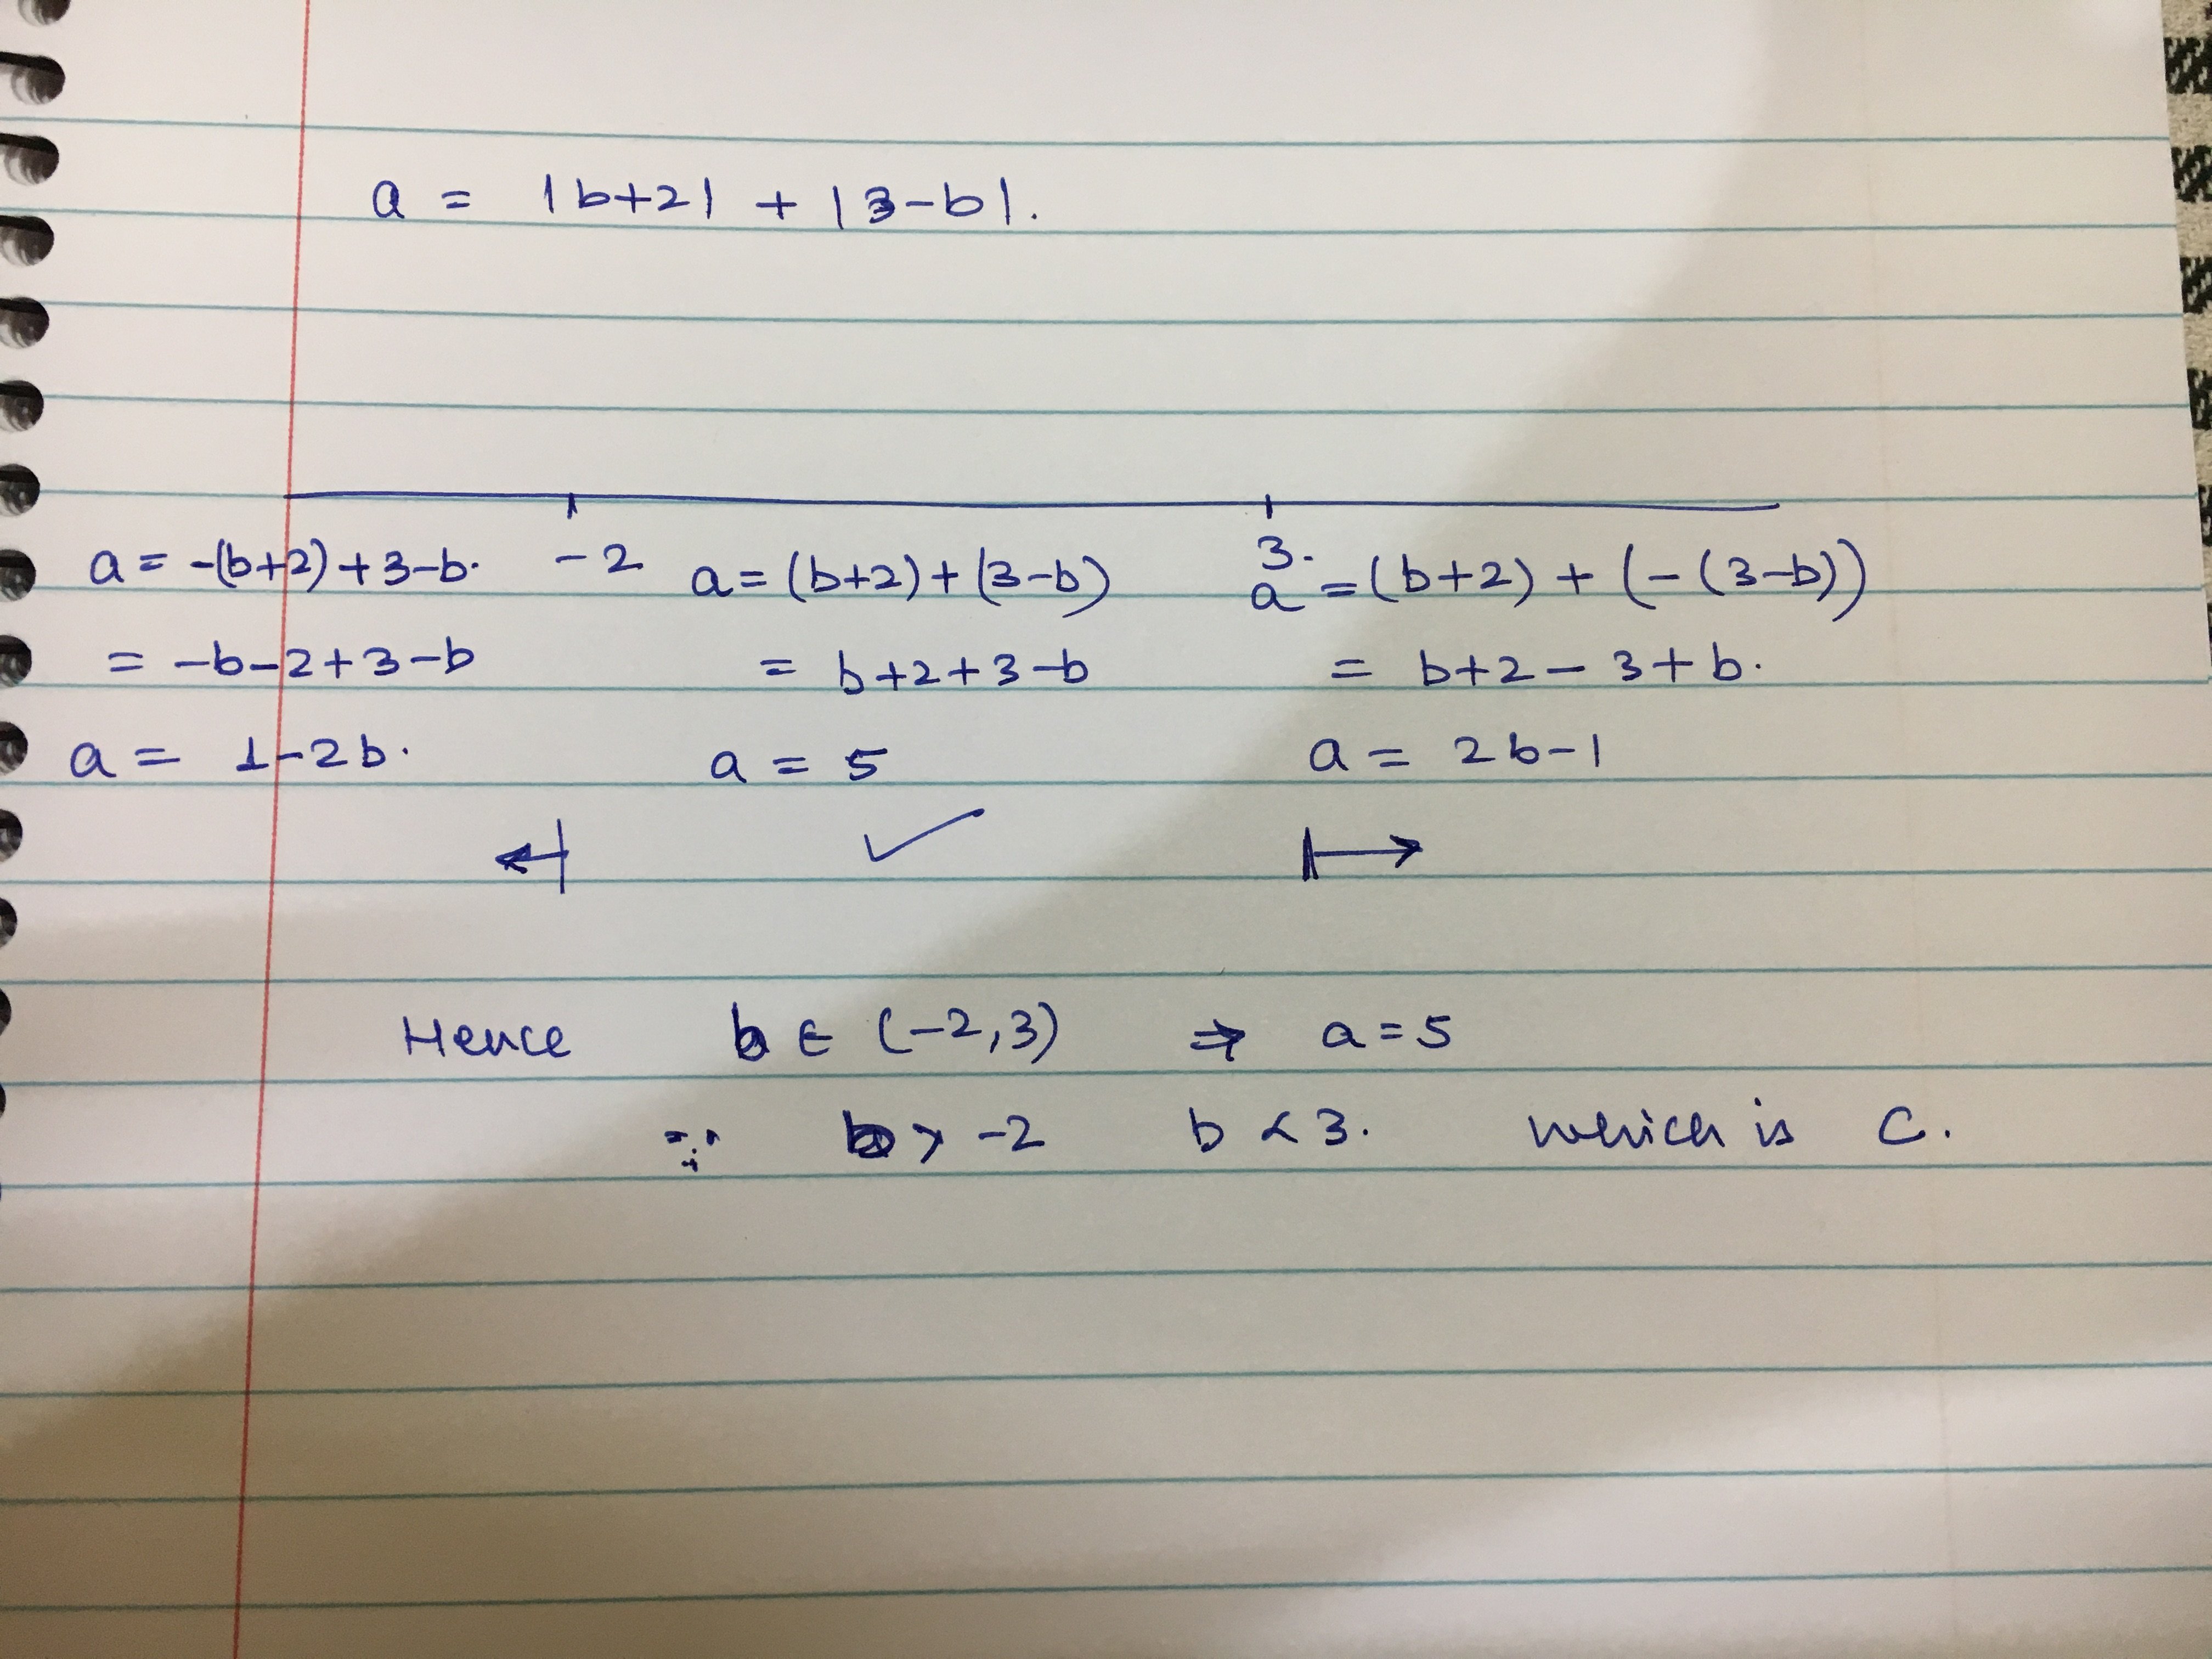 a = |b+2| + |3-b|.
-2 3.
a = -(b+2)+3-b. a = (b+2)+(3-b) a = (b+2) + (-(3-b))
= -b-2+3-b = b+2+3-b = b+2-3+b.
a = 1-2b. a = 5 a = 2b-1
Hence b ∈ (-2,3) ⇒ a=5
∵ b > -2 b < 3. which is C.